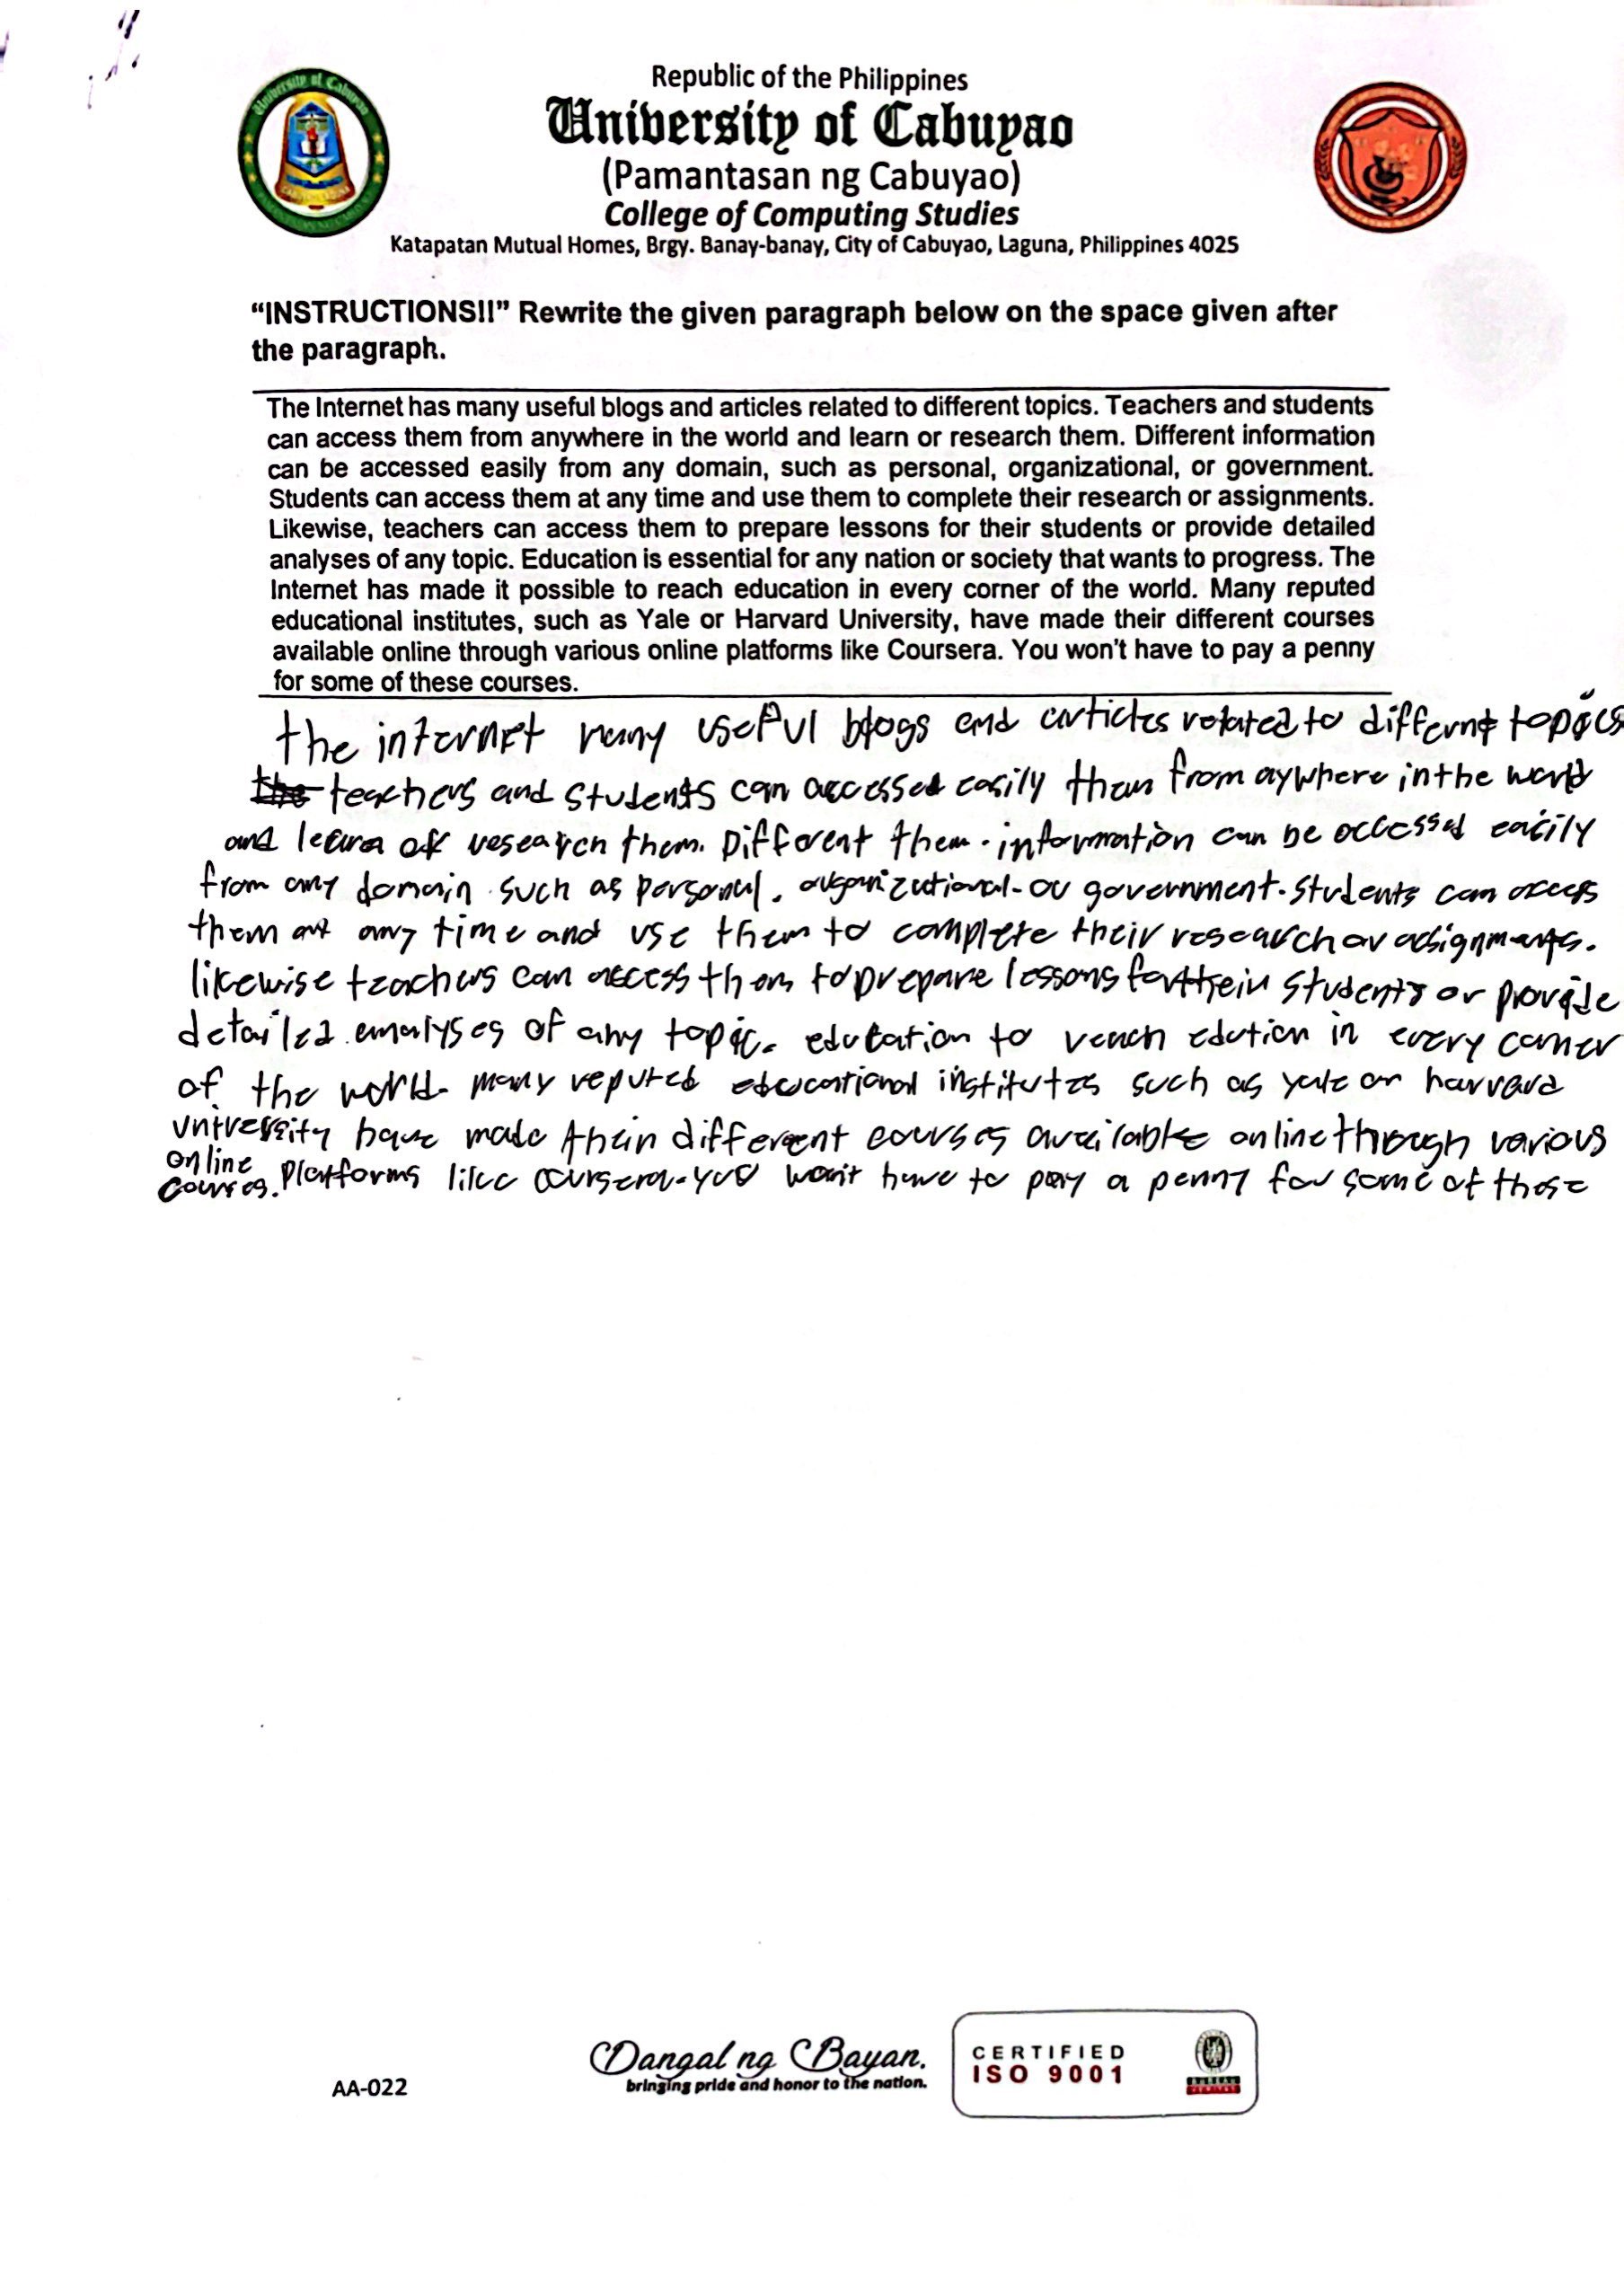 Republic of the Philippines
University of Cabuyao
(Pamantasan ng Cabuyao)
College of Computing Studies
Katapatan Mutual Homes, Brgy. Banay-banay, City of Cabuyao, Laguna, Philippines 4025
University of Cabuyao
“INSTRUCTIONS!!” Rewrite the given paragraph below on the space given after
the paragraph.
The Internet has many useful blogs and articles related to different topics. Teachers and students
can access them from anywhere in the world and learn or research them. Different information
can be accessed easily from any domain, such as personal, organizational, or government.
Students can access them at any time and use them to complete their research or assignments.
Likewise, teachers can access them to prepare lessons for their students or provide detailed
analyses of any topic. Education is essential for any nation or society that wants to progress. The
Internet has made it possible to reach education in every corner of the world. Many reputed
educational institutes, such as Yale or Harvard University, have made their different courses
available online through various online platforms like Coursera. You won't have to pay a penny
for some of these courses.
the internet many useful blogs and articles related to differnt topics
the teachers and students can accessed easily them from aywhere in the world
and learn or research them. Different them. information can be accessed easily
from any domain such as personal. organizational. or government. students can access
them at any time and use them to complete their research or assignments.
likewise teachers can access them to prepare lessons for their students or provide
detailed analyses of any topic. education to reach edution in every corner
of the world. many reputed educational institutes such as yale or harvard
university have made their different courses available online through various
online platforms like coursera. you won't have to pay a penny for some of these
courses.
Dangal ng Bayan.
bringing pride and honor to the nation.
AA-022
CERTIFIED
ISO 9001
BUREAU
VERITAS